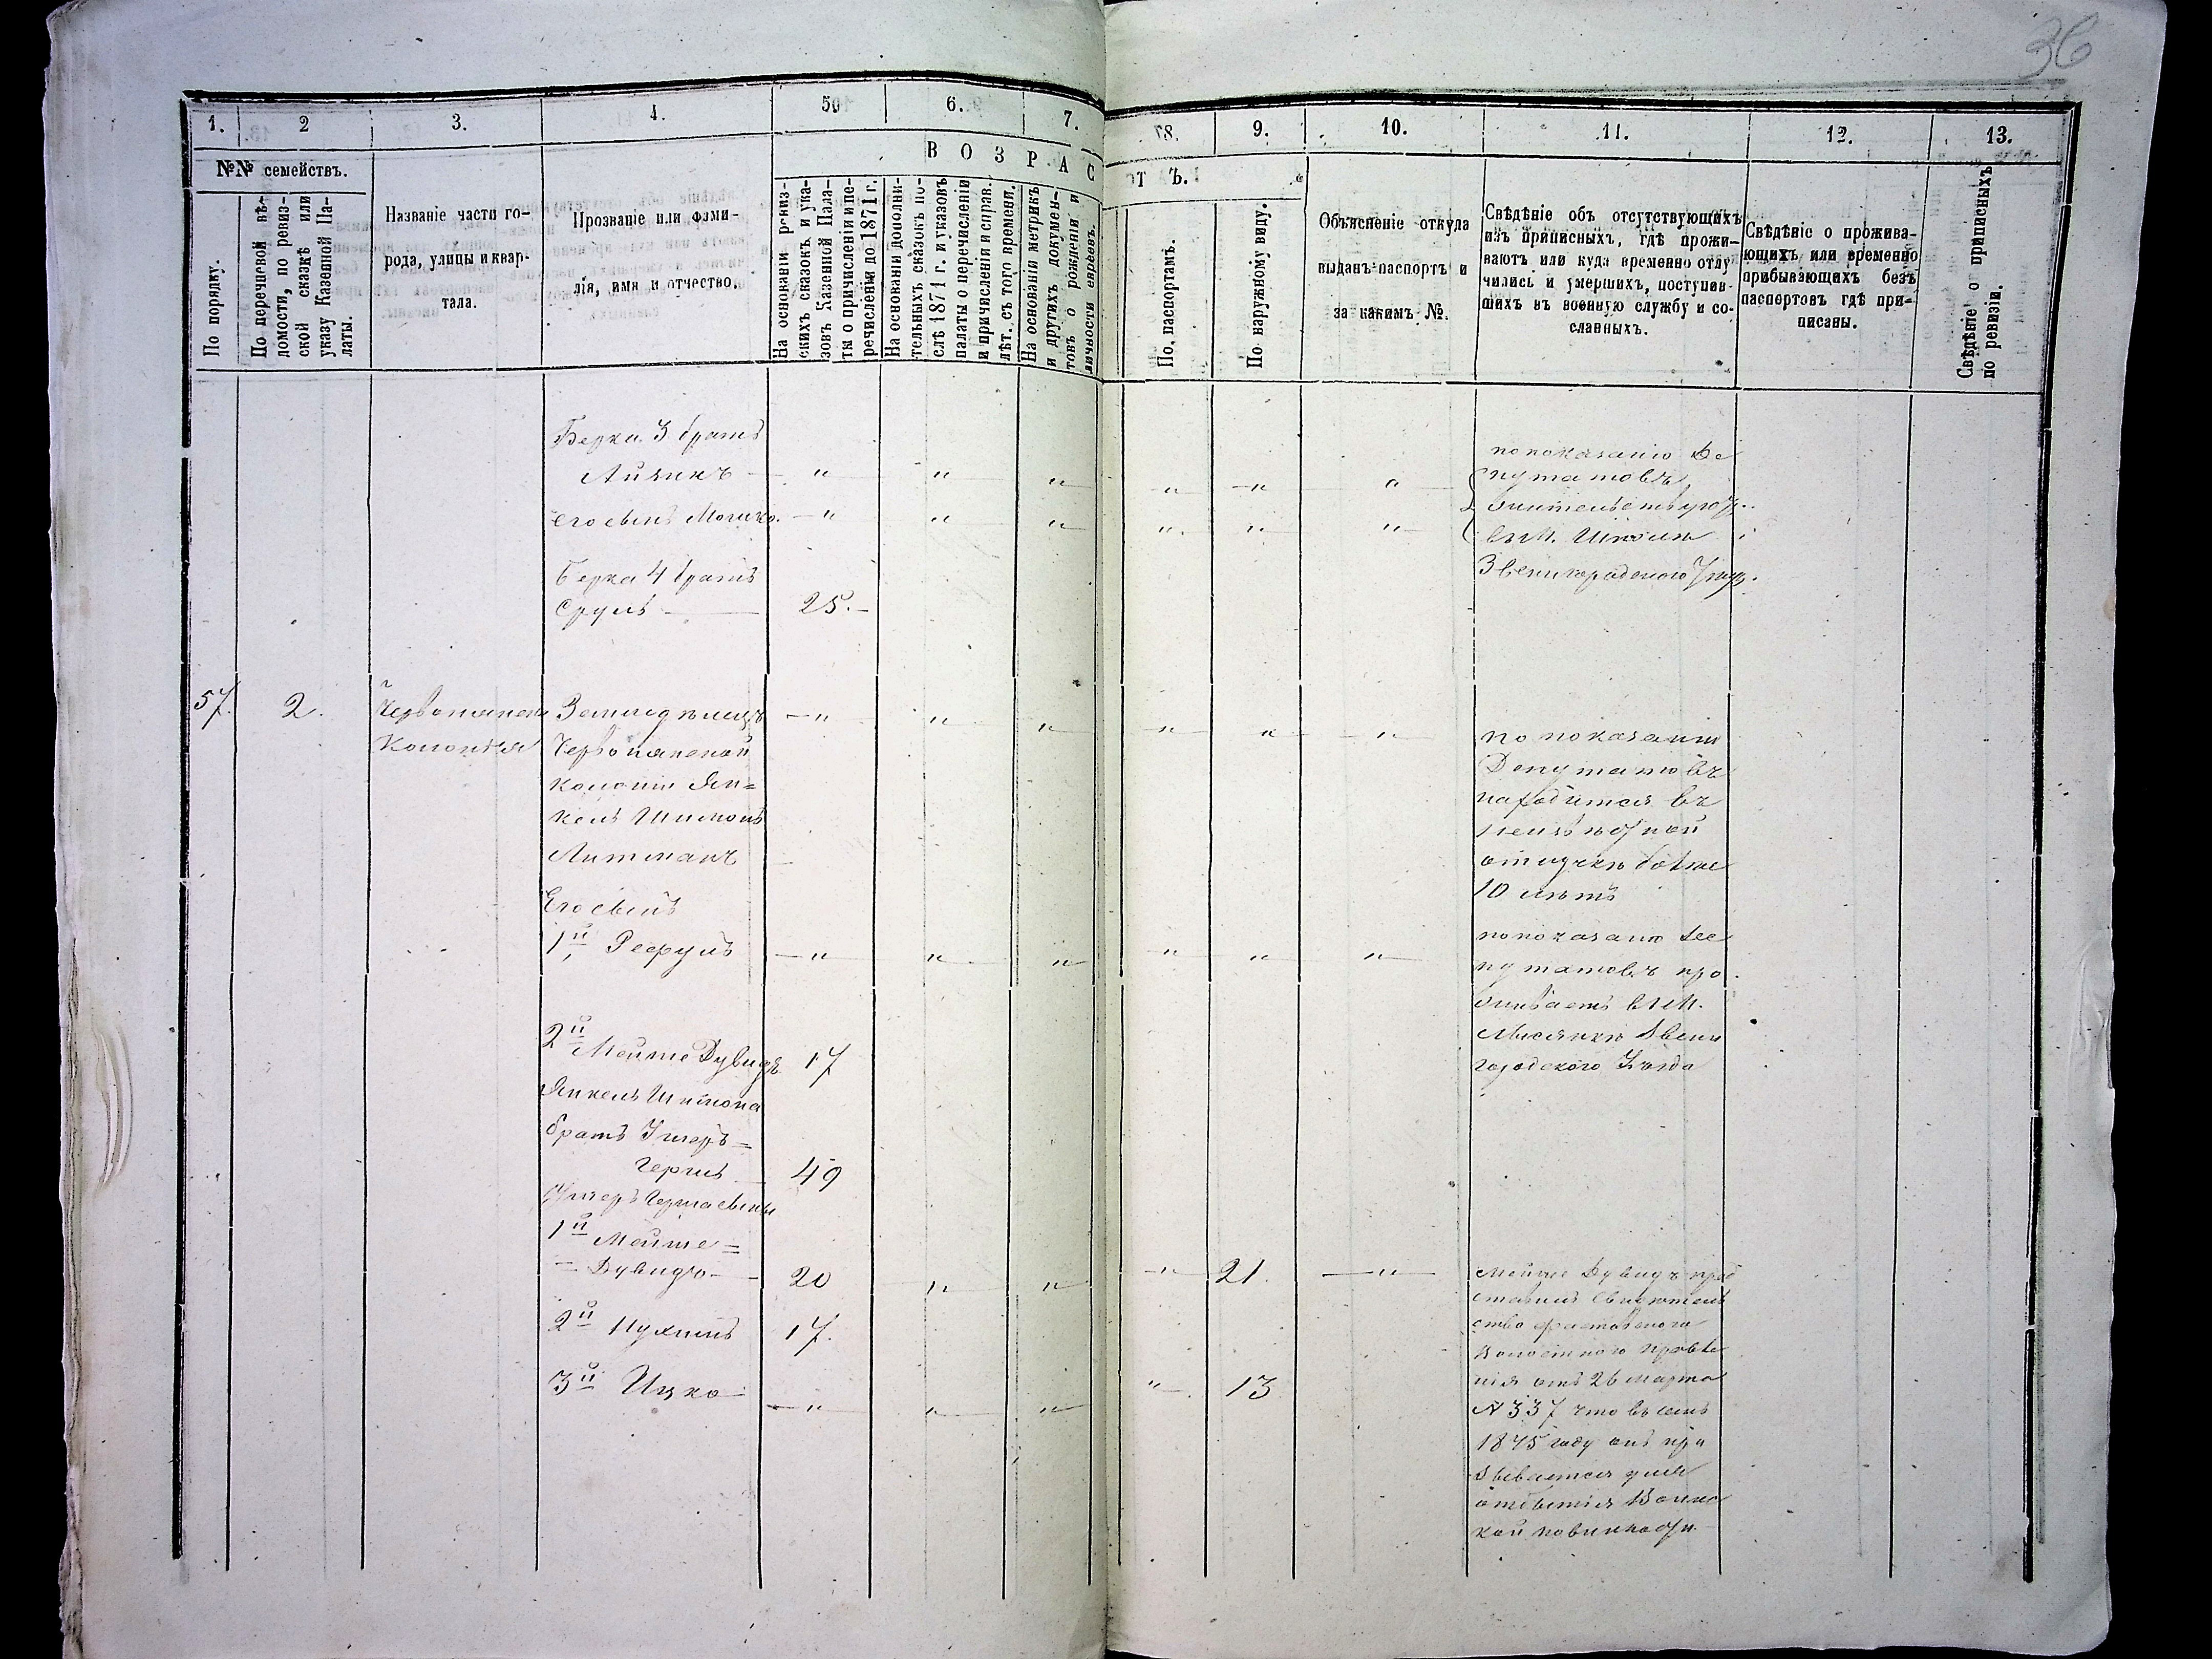 36
1. 2 3. 4. 5 6. 7. 8. 9. 10. 11. 12. 13.
№№ семействъ.
По порядку.
По перечневой вѣ-
домости, по ревиз-
ской сказкѣ или
указу Казенной Па-
латы.
Названіе части го-
рода, улицы и квар-
тала.
Прозваніе или фами-
лія, имя и отчество.
ВОЗРАСТЪ.
На основаніи ревиз-
скихъ сказокъ и ука-
зовъ Казенной Пала-
ты о причисленіи и пе-
речисленіи до 1871 г.
На основаніи дополни-
тельныхъ сказокъ по-
слѣ 1871 г. и указовъ
палаты о перечисленіи
и причисленіи и справ.
лѣт. съ того времени.
На основаніи метрикъ
и другихъ докумен-
товъ о рожденіи и
личности евреевъ.
По паспортамъ.
По наружному виду.
Объясненіе откуда
выданъ паспортъ и
за какимъ №.
Свѣдѣніе объ отсутствующихъ
изъ приписныхъ, гдѣ прожи-
ваютъ или куда временно отлу
чились и умершихъ, поступив-
шихъ въ военную службу и со-
сланныхъ.
Свѣдѣніе о прожива-
ющихъ или временно
прибывающихъ безъ
паспортовъ гдѣ при-
писаны.
Свѣдѣніе о приписныхъ
по ревизіи.
Берка 3 братъ
Айзикъ — " " " " " "
его сынъ Мошко — " " " " " "
по показанію Де
путатовъ
въ М. Шполѣ
Звенигородского
Берка 4 братъ
Сруль — 25. —
57. 2.
Колонія
Земледѣлецъ — " " " " " "
Червонянской
колоніи Ян=
кель Шимонъ
Литманъ
по показанію
Депутатовъ
находится въ
неизвѣстной
отлучкѣ болѣе
10 лѣтъ
Его сынъ
1й Рефулъ — " " " " " "
по показанію Де
путатовъ про
живаетъ въ М.
Лисянкѣ Звени
городского Уѣзда
2й Мойше Дувидъ 17
Янкель Шимона
братъ Ушеръ=
Гершъ 49
Ушеръ Герша сыны
1й Мойше=
= Дувидъ — 20 " " " 21. — " —
2й Нухимъ 17.
3й Ицко — " " " " 13
Мойше Дувидъ пред
ставилъ свидѣтель
ство
волостного правле
нія отъ 26 Марта
N 337 что въ семъ
1875 году онъ при
зывается для
отбытія Воинс
кой повинности.